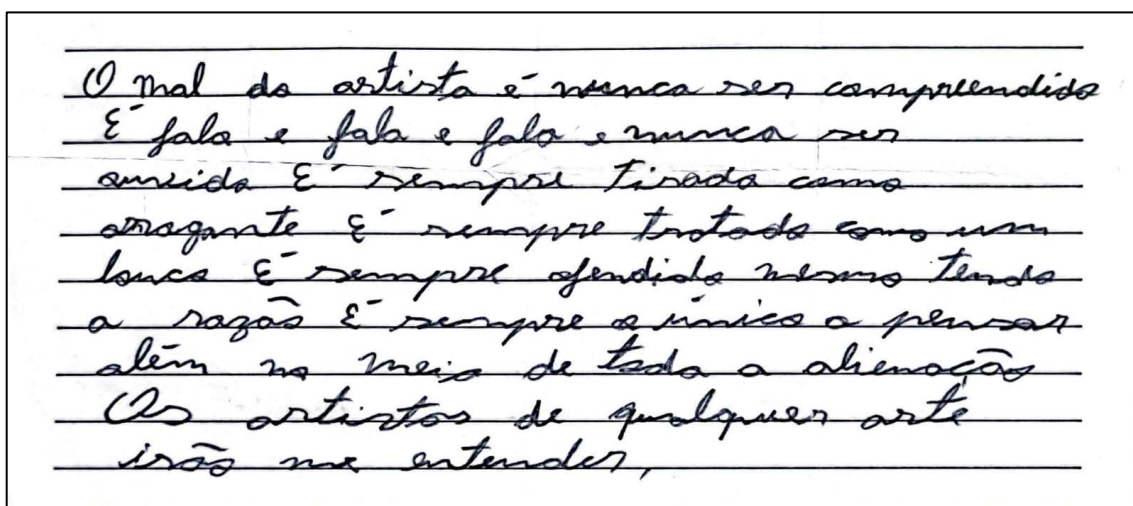 O mal do artista é nunca ser compreendido
É fala e fala e fala e nunca ser
ouvido É sempre tirado como
arrogante É sempre tratado como um
louco É sempre ofendido mesmo tendo
a razão É sempre o único a pensar
além no meio de toda a alienação
Os artistas de qualquer arte
irão me entender,